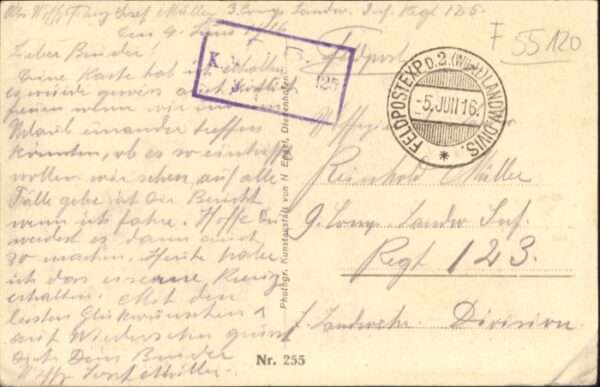 Abs. Wffz Franz Josef Müller 3. Comp. Landw. Inf. Regt 125.
den 4. Juni 1916
Lieber Bruder!
Deine Karte hab ich erhalten
es würde gewiss auch
freuen wenn wir im
Urlaub einander treffen
könnten, ob es so eintreffen
wollen wir sehen, auf alle
Fälle gebe ich Dir Bericht
wenn ich fahre. Hoffe Du
werdest es dann auch
so machen. Heute habe
ich das eiserne Kreuz
erhalten. Mit den
besten Glückwünschen
auf Wiedersehen grüsst
Dich Dein Bruder
Wffz Josef Müller.
K. 125
Feldpost
F 55120
FELDPOSTEXP. D. 2. (WÜ.) LANDW. DIVIS.
-5. JUNI 16.
Reinhold Müller
9. Comp. Landw. Inf.
Regt 123.
Landwehr Division.
Photogr. Kunstanstalt von H. Engel, Diedenhofen.
Nr. 255